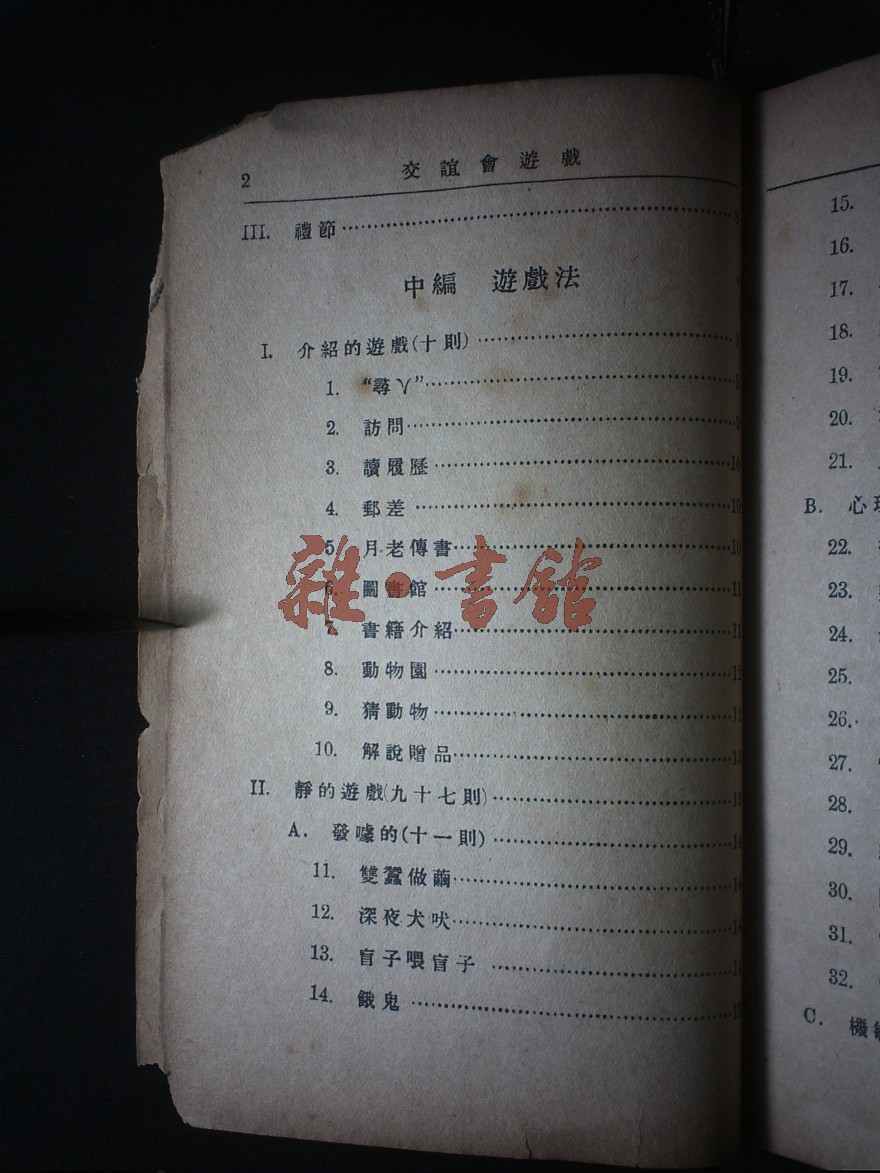 2 交誼會遊戲
III. 禮節
中編 遊戲法
I. 介紹的遊戲(十則)
1. “尋丫”
2. 訪問
3. 讀履歷 10
4. 郵差 10
5. 月老傳書 10
6. 圖書館 11
7. 書籍介紹 11
8. 動物園 12
9. 猜動物 12
10. 解說贈品
II. 靜的遊戲(九十七則) 13
A. 發噱的(十一則) 14
11. 雙蠶做繭 14
12. 深夜犬吠 14
13. 盲子喂盲子 14
14. 餓鬼
雜·書館
15.
16.
17.
18.
19.
20.
21.
B. 心
22.
23.
24.
25.
26.
27.
28.
29.
30.
31.
32.
C. 機